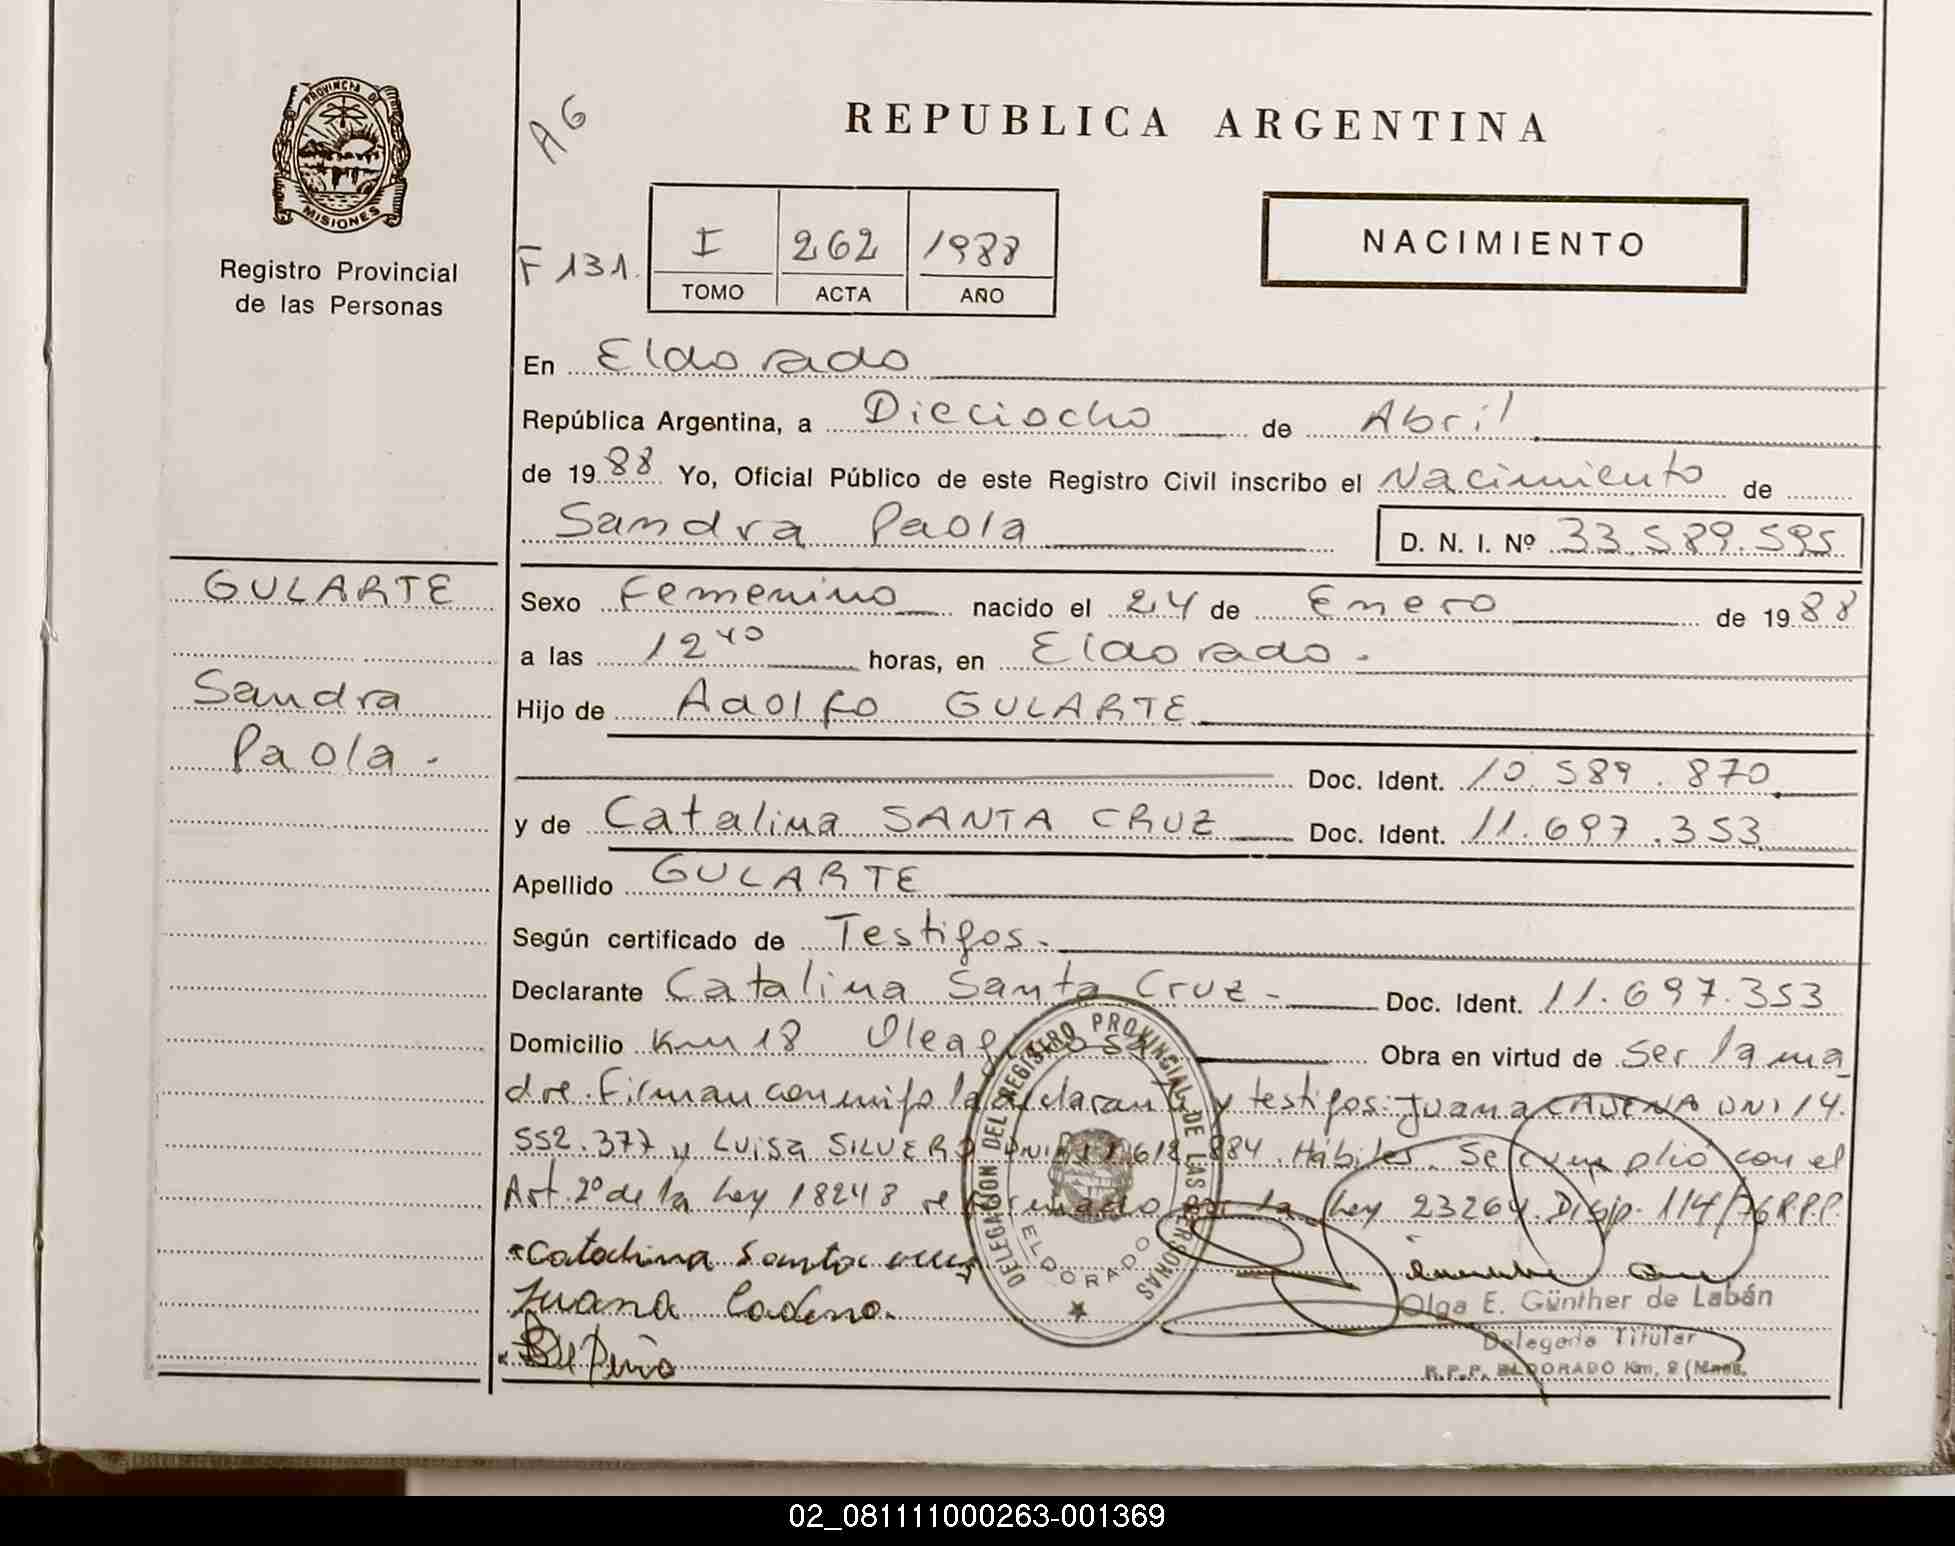 PROVINCIA DE
MISIONES
Registro Provincial
de las Personas
GULARTE
Sandra
Paola.-
A G
REPUBLICA ARGENTINA
NACIMIENTO
F 131.
I 262 1988
TOMO ACTA AÑO
En Eldorado
República Argentina, a Dieciocho de Abril
de 1988 Yo, Oficial Público de este Registro Civil inscribo el Nacimiento de
Sandra Paola D. N. I. Nº 33.589.595
Sexo Femenino nacido el 24 de Enero de 1988
a las 12 40 horas, en Eldorado.
Hijo de Adolfo GULARTE
Doc. Ident. 10.589.870
y de Catalina SANTA CRUZ Doc. Ident. 11.697.353
Apellido GULARTE
Según certificado de Testigos.
Declarante Catalina Santa Cruz Doc. Ident. 11.697.353
Domicilio Km 18 Oleaginosa Obra en virtud de ser la ma
dre. Firman conmigo la declarante y testigos: Juana CADENA DNI 14.
552.377 y Luisa SILVERO DNI 618.884. Hábiles. Se cumplió con el
Art. 2º de la Ley 18248 reformado por la Ley 23264. Disp. 114/76 R.P.P.
Catalina Santa cruz
Juana Cadena.
DELEGACION DEL REGISTRO PROVINCIAL DE LAS PERSONAS
ELDORADO
Olga E. Günther de Labán
Delegada Titular
R.P.P. ELDORADO Km. 9 (Mnes.
02_081111000263-001369